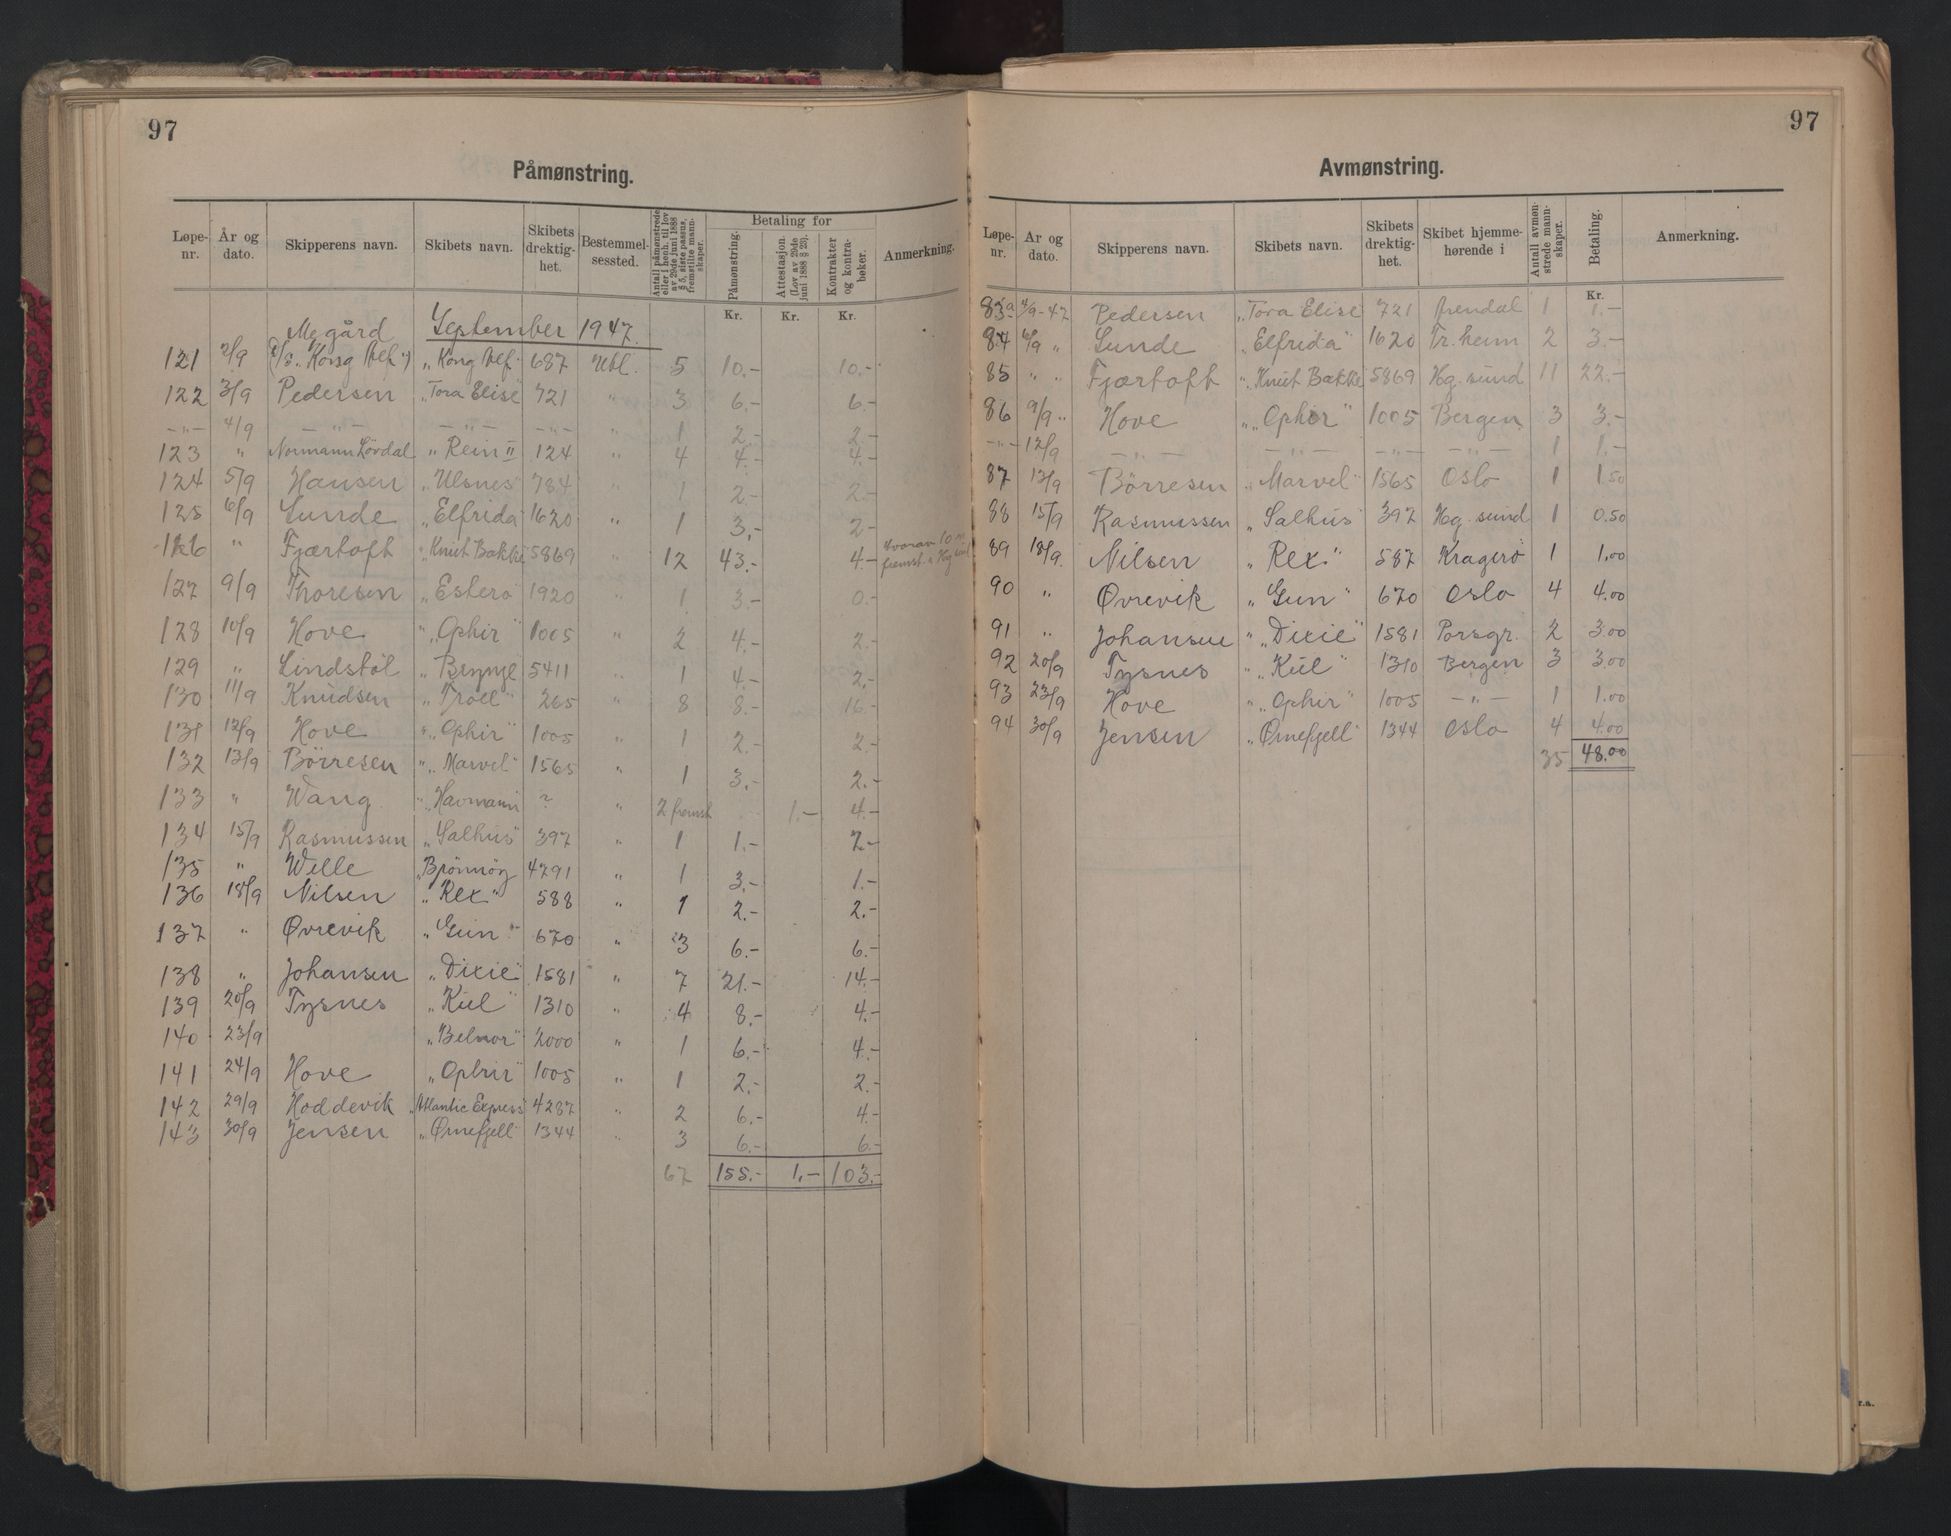 97
Påmønstring.
Løpe-nr. | År og dato. | Skipperens navn. | Skibets navn. | Skibets drektig-het. | Bestemmel-sessted. | Antall påmønstrede eller i henh. til lov av 29de juni 1888 § 5, siste passus, fremstilte mann-skaper. | Betaling for | Påmønstring. | Attestasjon. (Lov av 29de juni 1888 § 23). | Kontrakter og kontra-bøker. | Anmerkning.
Kr. | Kr. | Kr.
Megård | September 1947.
121 | 2/9 | (D/S. "Kong Alf") | "Kong Alf" | 687 | Utl. | 5 | 10.- | 10.-
122 | 3/9 | Pedersen | "Tora Elise" | 721 | " | 3 | 6.- | 6.-
-"- | 4/9 | -"- | -"- | -"- | " | 1 | 2.- | 2.-
123 | " | Normann Lövdal | "Rein II" | 124 | " | 4 | 4.- | 4.-
124 | 5/9 | Hansen | "Ulsnes" | 784 | " | 1 | 2.- | 2.-
125 | 6/9 | Sunde | "Elfrida" | 1620 | " | 1 | 3.- | 2-
126 | " | Fjærtoft | "Knut Bakke" | 5869 | " | 12 | 43.- | 4.- | hvorav 10 m. fremst. i Hg.sund
127 | 9/9 | Thoresen | "Estero" | 1920 | " | 1 | 3.- | 0.-
128 | 10/9 | Hove | "Ophir" | 1005 | " | 2 | 4.- | 2.-
129 | " | Lindstöl | "Brynje" | 5411 | " | 1 | 4.- | 2.-
130 | 11/9 | Knudsen | "Troll" | 265 | " | 8 | 8.- | 16.-
131 | 12/9 | Hove | "Ophir" | 1005 | " | 1 | 2.- | 2.-
132 | 13/9 | Börresen | "Marvel" | 1565 | " | 1 | 3.- | 2.-
133 | " | Wang | "Havmann" | ? | " | 2 fremst. | 1.- | 4.-
134 | 15/9 | Rasmussen | "Salhus" | 397 | " | 1 | 1.- | 2.-
135 | " | Wille | "Brönnöy | 4291 | " | 1 | 3.- | 1.-
136 | 18/9 | Nilsen | "Rex" | 588 | " | 1 | 2.- | 2.-
137 | " | Øvrevik | "Gun" | 670 | " | 3 | 6.- | 6.-
138 | " | Johansen | "Dixie" | 1581 | " | 7 | 21.- | 14.-
139 | 20/9 | Tysnes | "Kiel" | 1310 | " | 4 | 8.- | 4.-
140 | 23/9 | "Belmor" | 2000 | " | 1 | 6.- | 4.-
141 | 24/9 | Hove | "Ophir" | 1005 | " | 1 | 2.- | 2.-
142 | 29/9 | Hoddevik | "Atlantic Express" | 4287 | " | 2 | 6.- | 4.-
143 | 30/9 | Jensen | "Ørnefjell" | 1344 | " | 3 | 6.- | 6.-
67 | 155.- | 1.- | 103.-
97
Avmønstring.
Løpe-nr. | År og dato. | Skipperens navn. | Skibets navn. | Skibets drektig-het. | Skibet hjemme-hørende i | Antall avmøn-strede mann-skaper. | Betaling. | Anmerkning.
Kr.
83a | 4/9-47 | Pedersen | "Tora Elise | 721 | Arendal | 1 | 1.-
84 | 6/9 " | Sunde | "Elfrida" | 1620 | Tr.heim | 2 | 3.-
85 | " " | Fjærtoft | "Knut Bakke | 5869 | Hg.sund | 11 | 22.-
86 | 9/9 " | Hove | "Ophir" | 1005 | Bergen | 3 | 3.-
-"- | 12/9 | -"- | -"- | -"- | -"- | 1 | 1.-
87 | 13/9 | Börresen | "Marvel" | 1565 | Oslo | 1 | 1.50
88 | 15/9 | Rasmussen | "Salhus" | 397 | Hg.sund | 1 | 0.50
89 | 18/9. | Nilsen | "Rex" | 587 | Kragerö | 1 | 1.00
90 | " | Øvrevik | "Gun" | 670 | Oslo | 4 | 4.00
91 | " | Johansen | "Dixie" | 1581 | Porsgr. | 2 | 3.00
92 | 20/9 | Tysnes | "Kiel" | 1310 | Bergen | 3 | 3.00
93 | 23/9 | Hove | "Ophir" | 1005 | -"- | 1 | 1.00
94 | 30/9 | Jensen | "Ørnefjell" | 1344 | Oslo | 4 | 4.00
35 | 48.00
r.a.